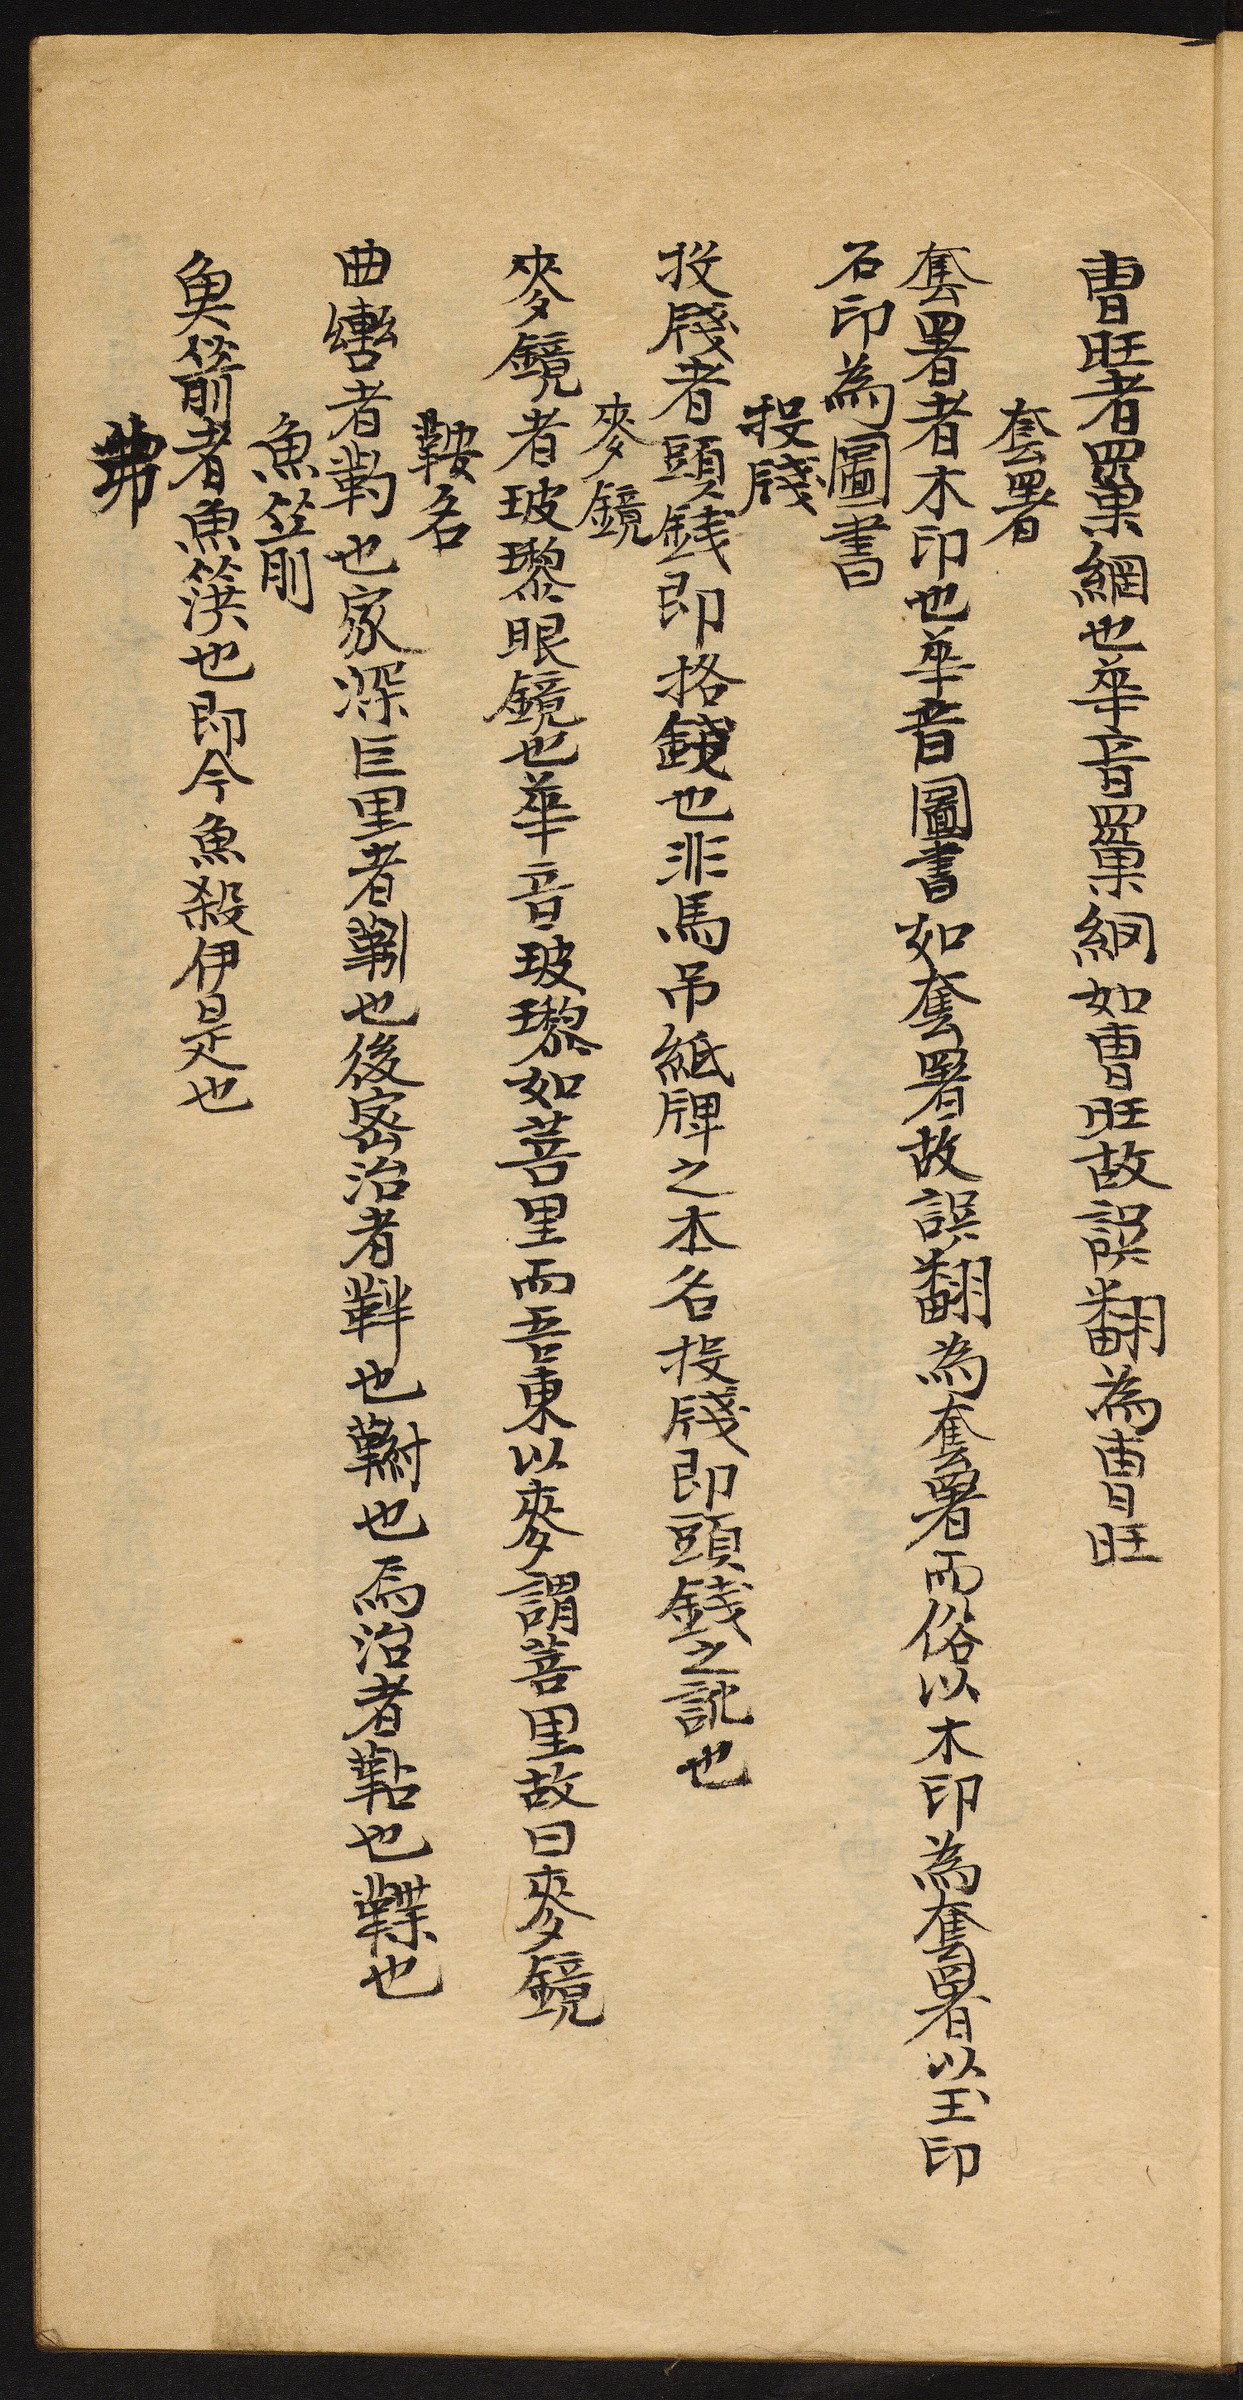 曺旺者罺網也華音罺網如曺旺故誤翻為曺旺
套署
套署者木印也華音圖書如套署故誤翻為套署而俗以木印為套署以玉印
石印為圖書
投牋
投牋者頭錢即格錢也非馬吊紙牌之本名投牋即頭錢之訛也
麥鏡
麥鏡者玻瓈眼鏡也華音玻瓈如菩里而吾東以麥謂菩里故曰麥鏡
鞍名
曲轡者靮也家深巨里者也後宻治者靽也也馬治者鞊也鞢也
魚箭
魚箭者魚篊也即今魚殺伊是也
茀